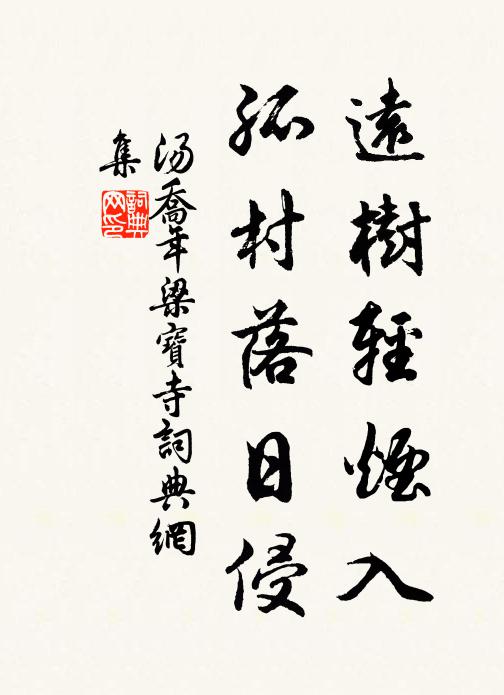 遠樹輕煙入
孤村落日侵
湯喬年梁寶寺詞典網
集
詞典
网印